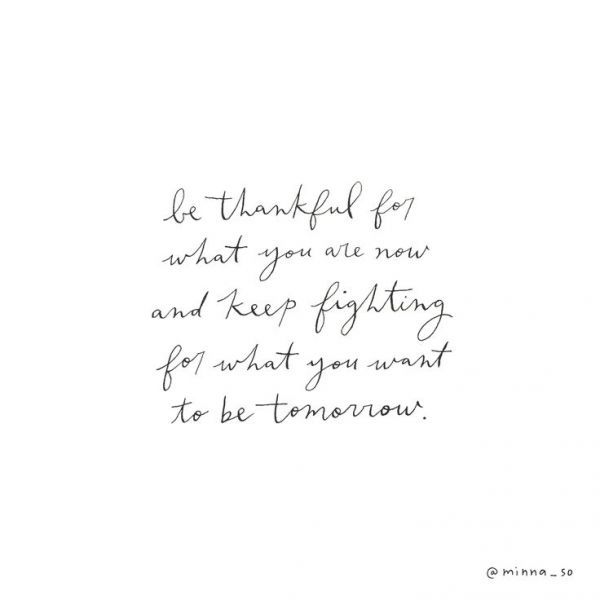 be thankful for
what you are now
and keep fighting
for what you want
to be tomorrow.
@minna_so